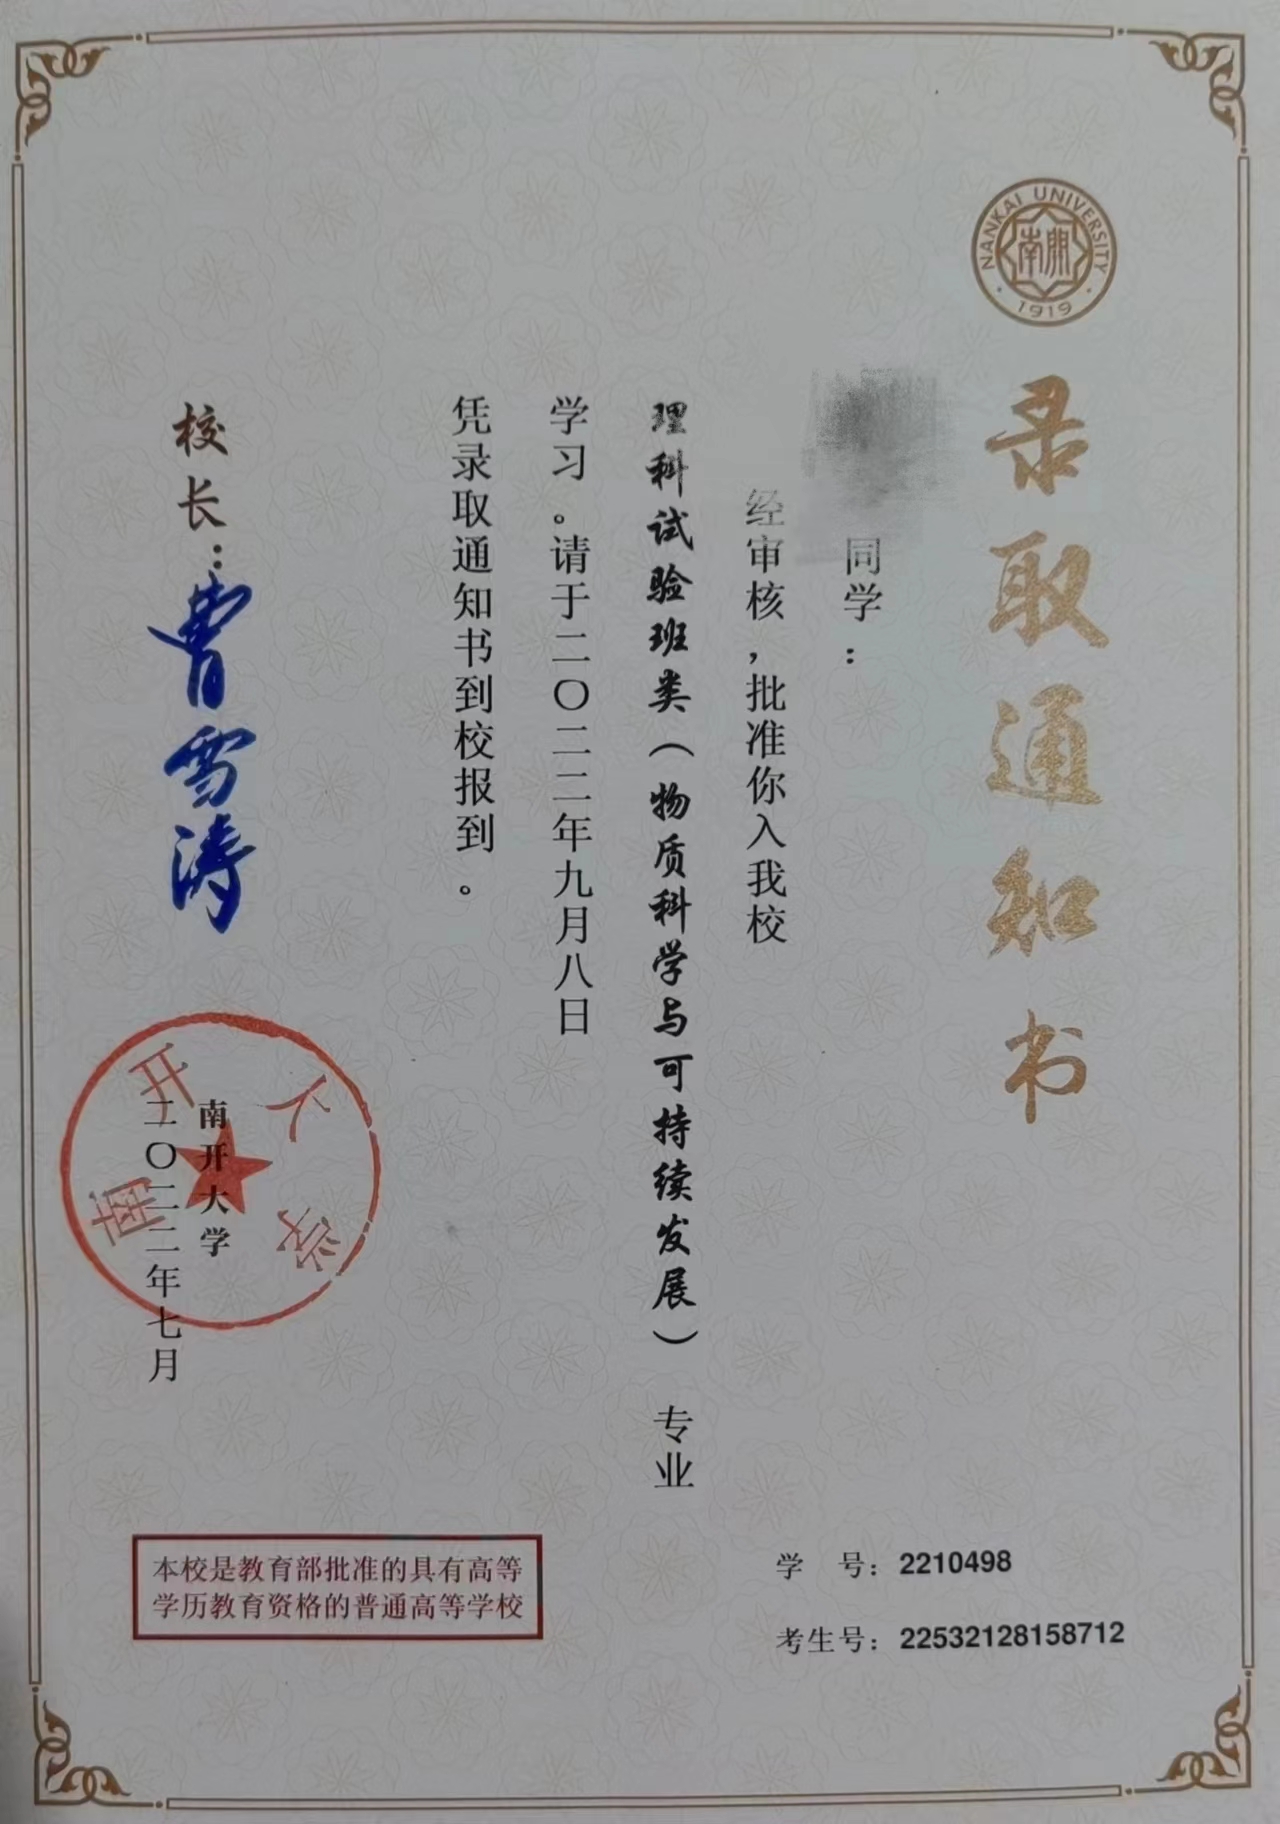 NANKAI UNIVERSITY
南開
1919
录取通知书
同学：
经审核，批准你入我校
理科试验班类（物质科学与可持续发展）专业
学习。请于二〇二二年九月八日
凭录取通知书到校报到。
校长：曹雪涛
南开大学
二〇二二年七月
南开大学
学 号：2210498
考生号：22532128158712
本校是教育部批准的具有高等
学历教育资格的普通高等学校